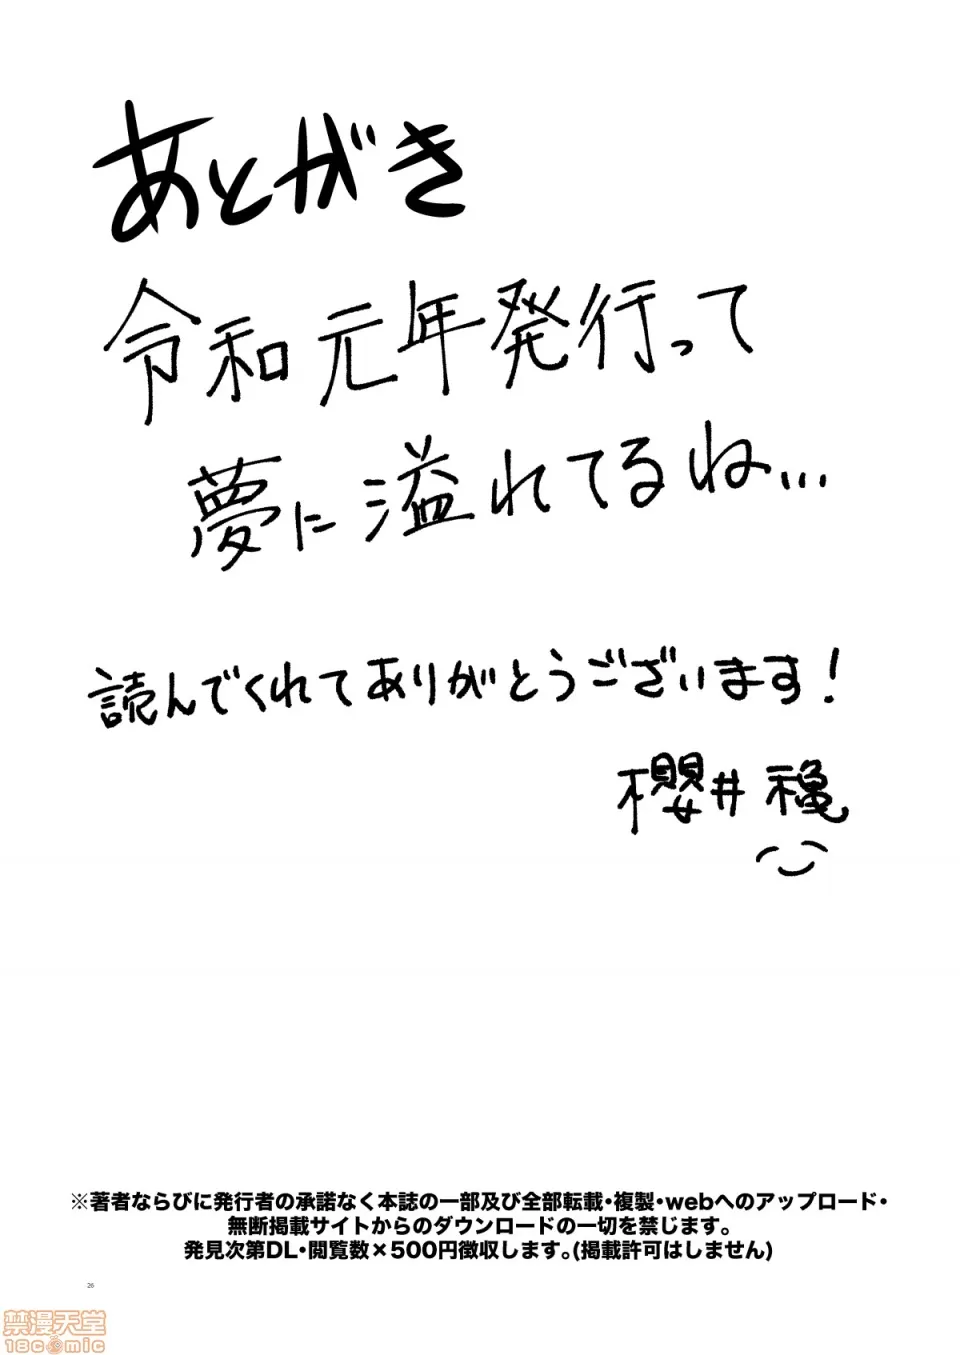 あとがき
令和元年発行って
夢に溢れてるね...
読んでくれてありがとうございます！
櫻井 穐
※著者ならびに発行者の承諾なく本誌の一部及び全部転載・複製・webへのアップロード・
無断掲載サイトからのダウンロードの一切を禁じます。
発見次第DL・閲覧数×500円徴収します。(掲載許可はしません)
26
禁漫天堂
18comic